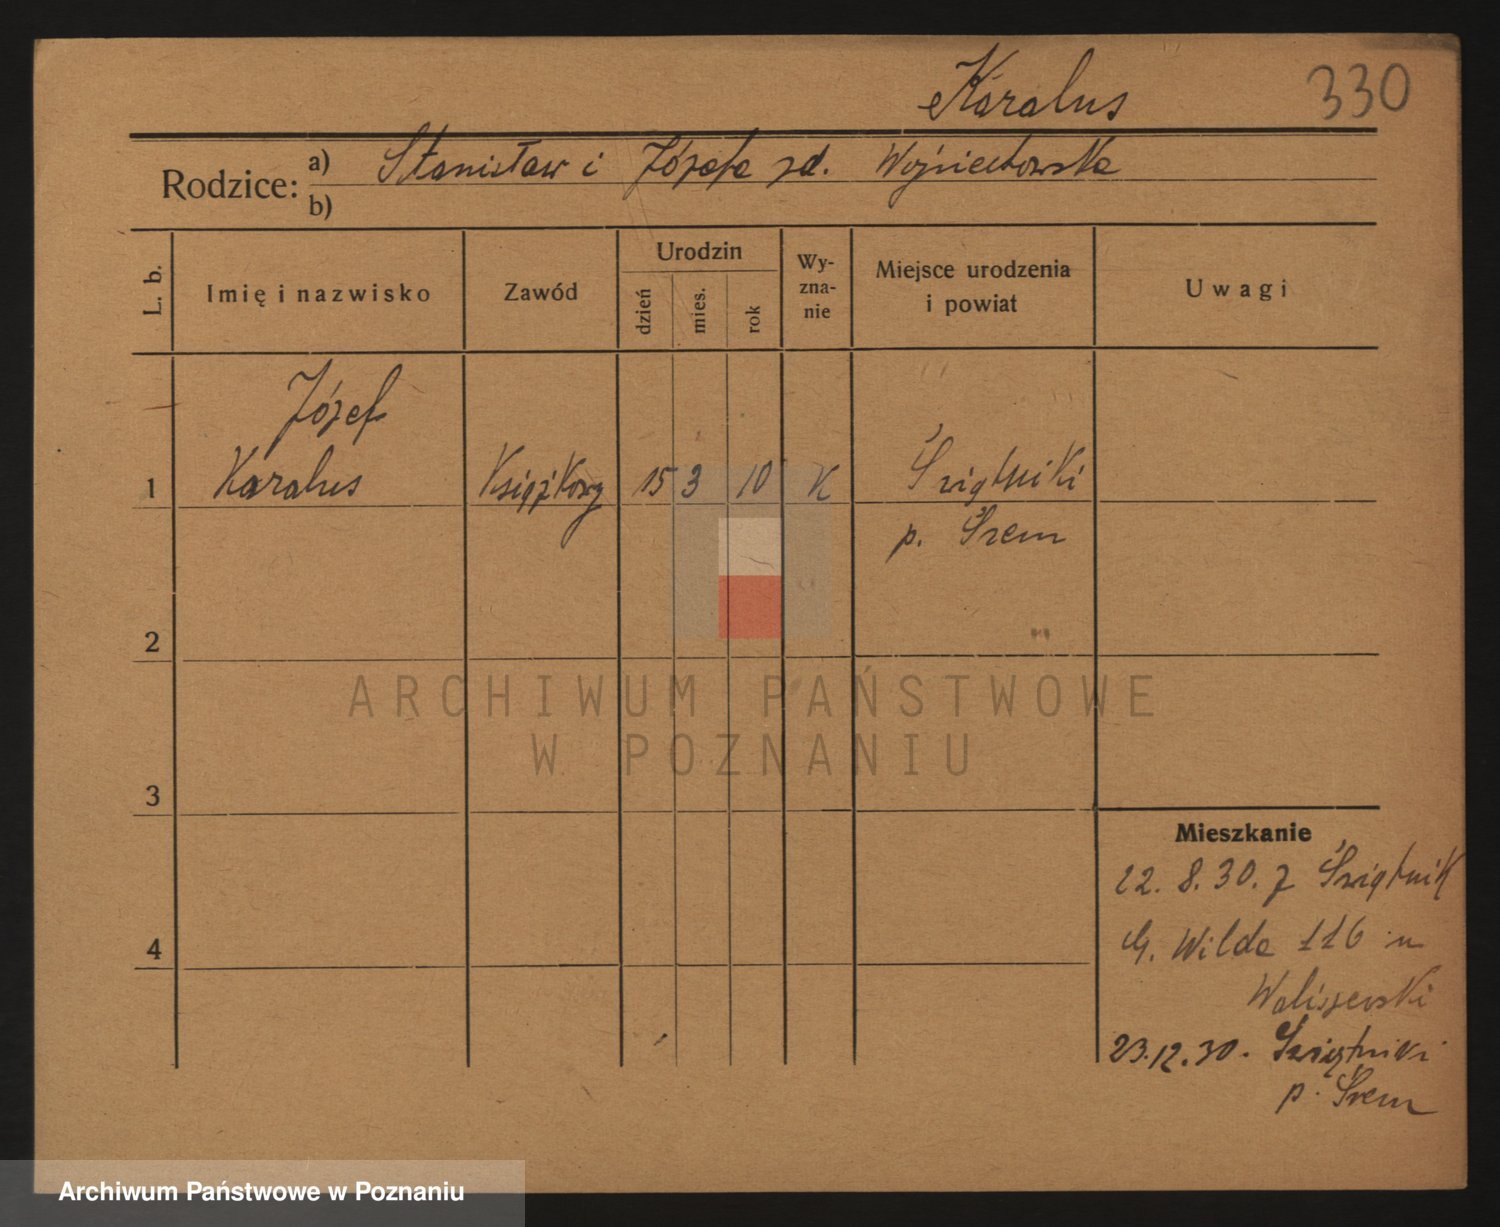 Karalus
330
Rodzice: a) Stanisław i Józefa zd. Wojciechowska
b)
L. b.
Imię i nazwisko
Zawód
Urodzin
dzień
mies.
rok
Wy-
zna-
nie
Miejsce urodzenia
i powiat
Uwagi
Józef
1 Karalus Książkowy 15 3 10 K Świątniki
p. Śrem
2
3
4
Mieszkanie
22. 8. 30. z Świątnik
G. Wilda 116 u
Waliszewski
23.12.30. Świątniki
p. Śrem
ARCHIWUM PAŃSTWOWE
W POZNANIU
Archiwum Państwowe w Poznaniu